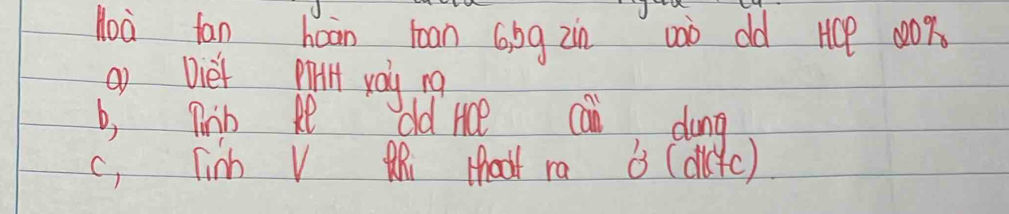 Hoà tan hoàn toan 6,5g zin vào dd HCl 20%
a) Viết PTHH xảy ra
b, Tính kl dd HCl cần dung
c, Tính V khí thoát ra ở (đktc).